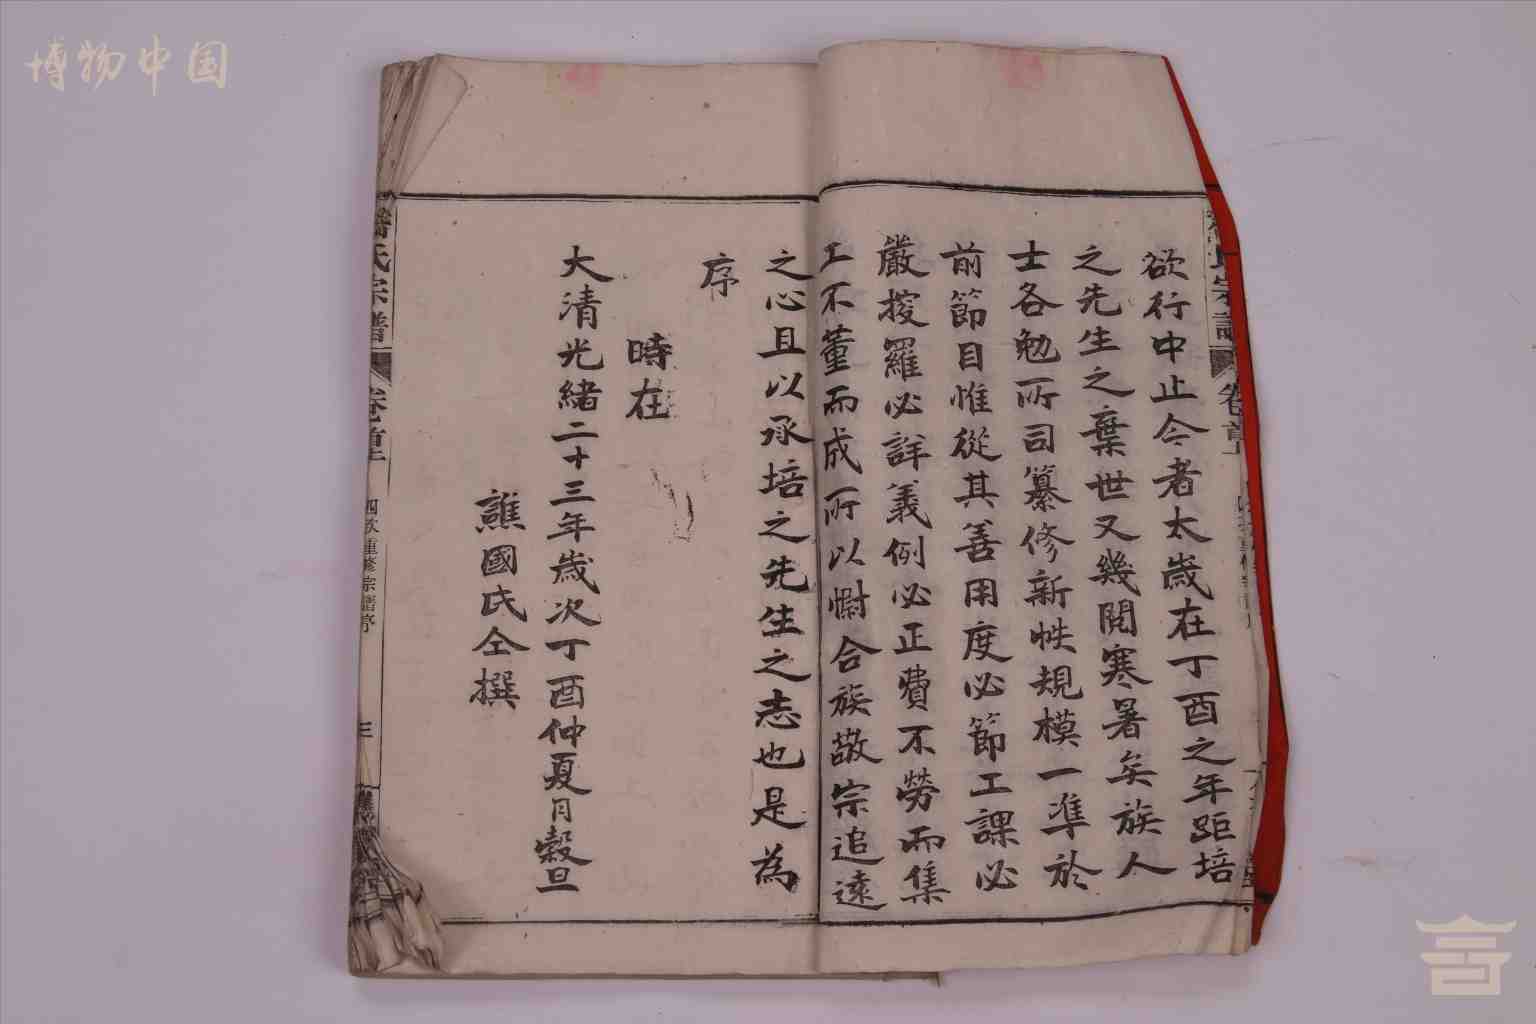 博物中国
欲行中止今者太歲在丁酉之年距培
之先生之棄世又幾閱寒暑矣族人
士各勉所司纂修新帙規模一準於
前節目惟從其善用度必節工課必
嚴搜羅必詳義例必正費不勞而集
工不董而成所以慰合族敬宗追遠
之心且以承培之先生之志也是為
序
時在
大清光緒二十三年歲次丁酉仲夏月穀旦
譙國氏仝撰
氏宗譜
卷首上
重修宗譜序
三